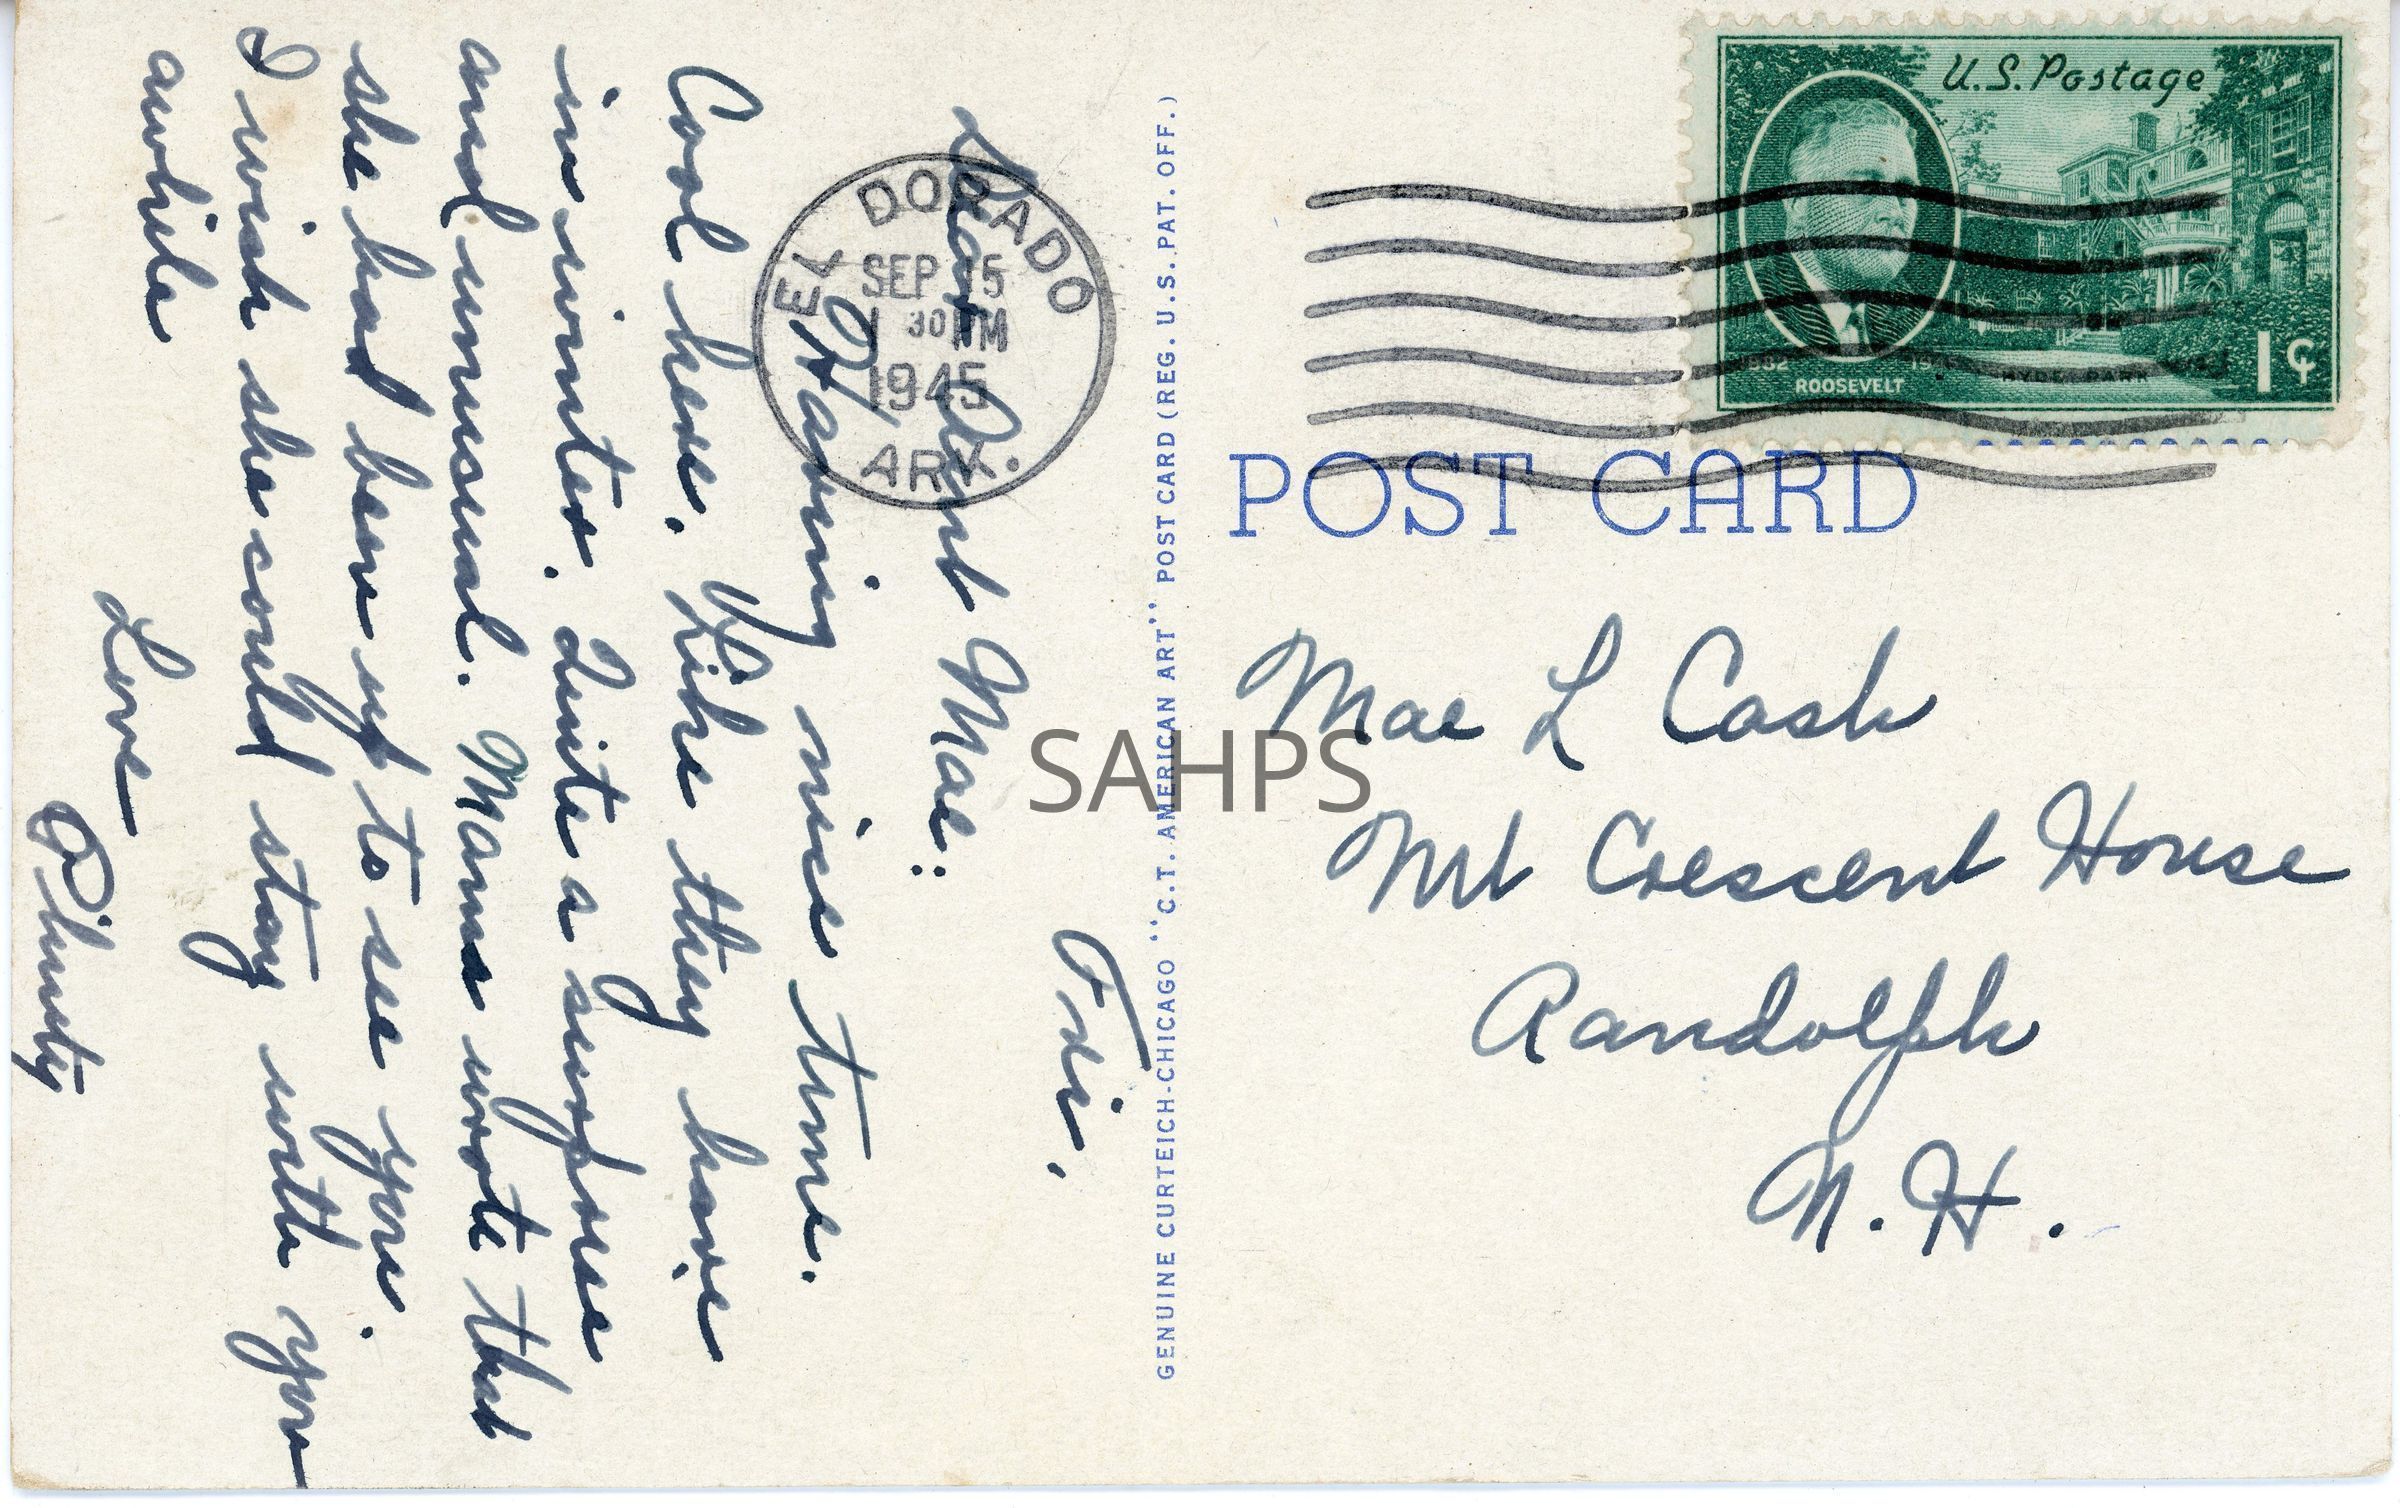 Fri.
Dear Aunt Mae:
Having nice time.
Cool here. Like they have
in winter. Quite a surprise
and unusual. Mama wrote that
she had been up to see you.
I wish she could stay with you
awhile
Love
EL DORADO
SEP 15
1 30 PM
1945
ARK.
GENUINE CURTEICH-CHICAGO "C.T. AMERICAN ART" POST CARD (REG. U.S. PAT. OFF.)
U.S. Postage
1882 1945
ROOSEVELT
HYDE PARK
1¢
POST CARD
Mae L Cash
Mt Crescent House
Randolph
N. H.
SAHPS